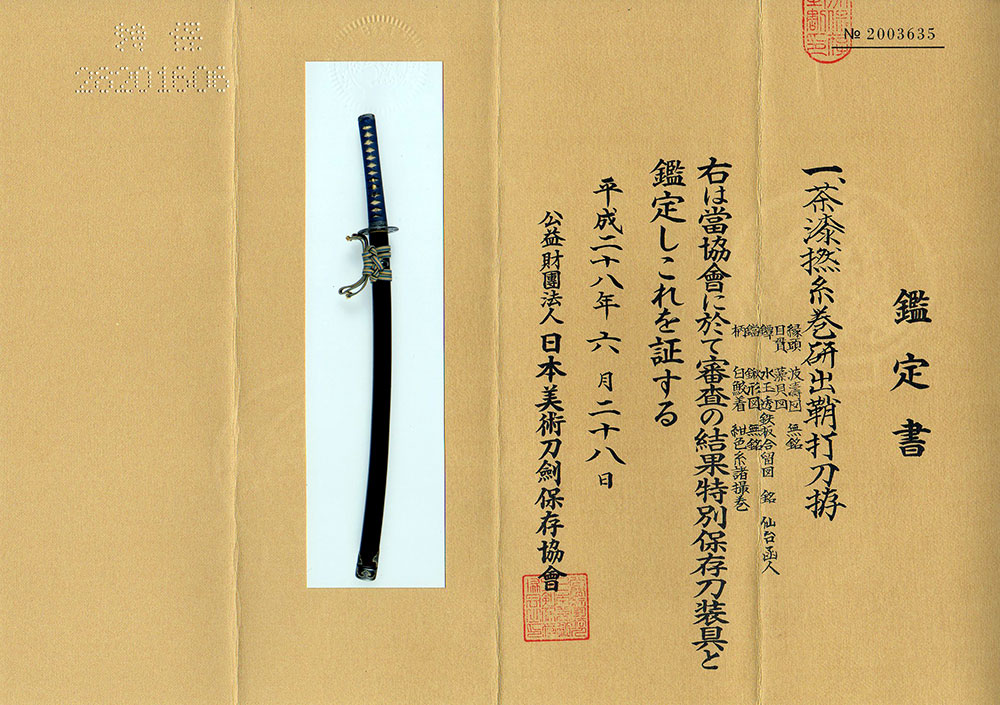 № 2003635
鑑定書
一、茶漆撚糸巻研出鞘打刀拵
縁頭 波濤図 無銘
目貫 藻貝図
鐔 水玉透鉄板合留図 銘 仙台函人
鐺 鍬形図 無銘
柄 白鮫着 紺色糸諸撮巻
右は當協會に於て審査の結果特別保存刀装具と
鑑定しこれを証する
平成二十八年六月二十八日
公益財團法人 日本美術刀劍保存協會
特保
28201606